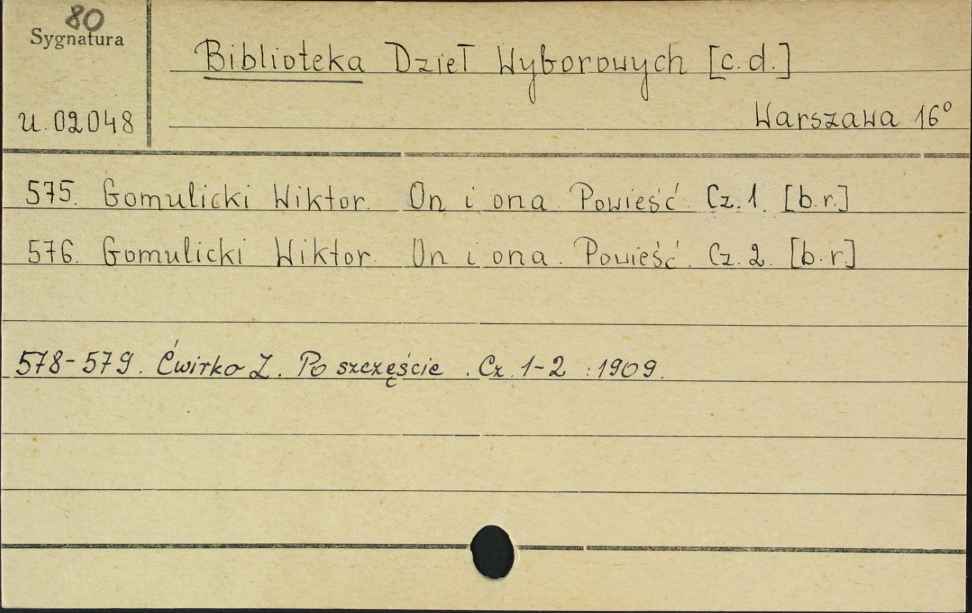 80
Sygnatura
Biblioteka Dzieł Wyborowych [c.d.]
U. 02048
Warszawa 16°
575. Gomulicki Wiktor. On i ona. Powieść. Cz. 1. [b.r.]
576. Gomulicki Wiktor. On i ona. Powieść. Cz. 2. [b.r.]
578-579. Ćwirko Z. Po szczęście. Cz. 1-2 : 1909.